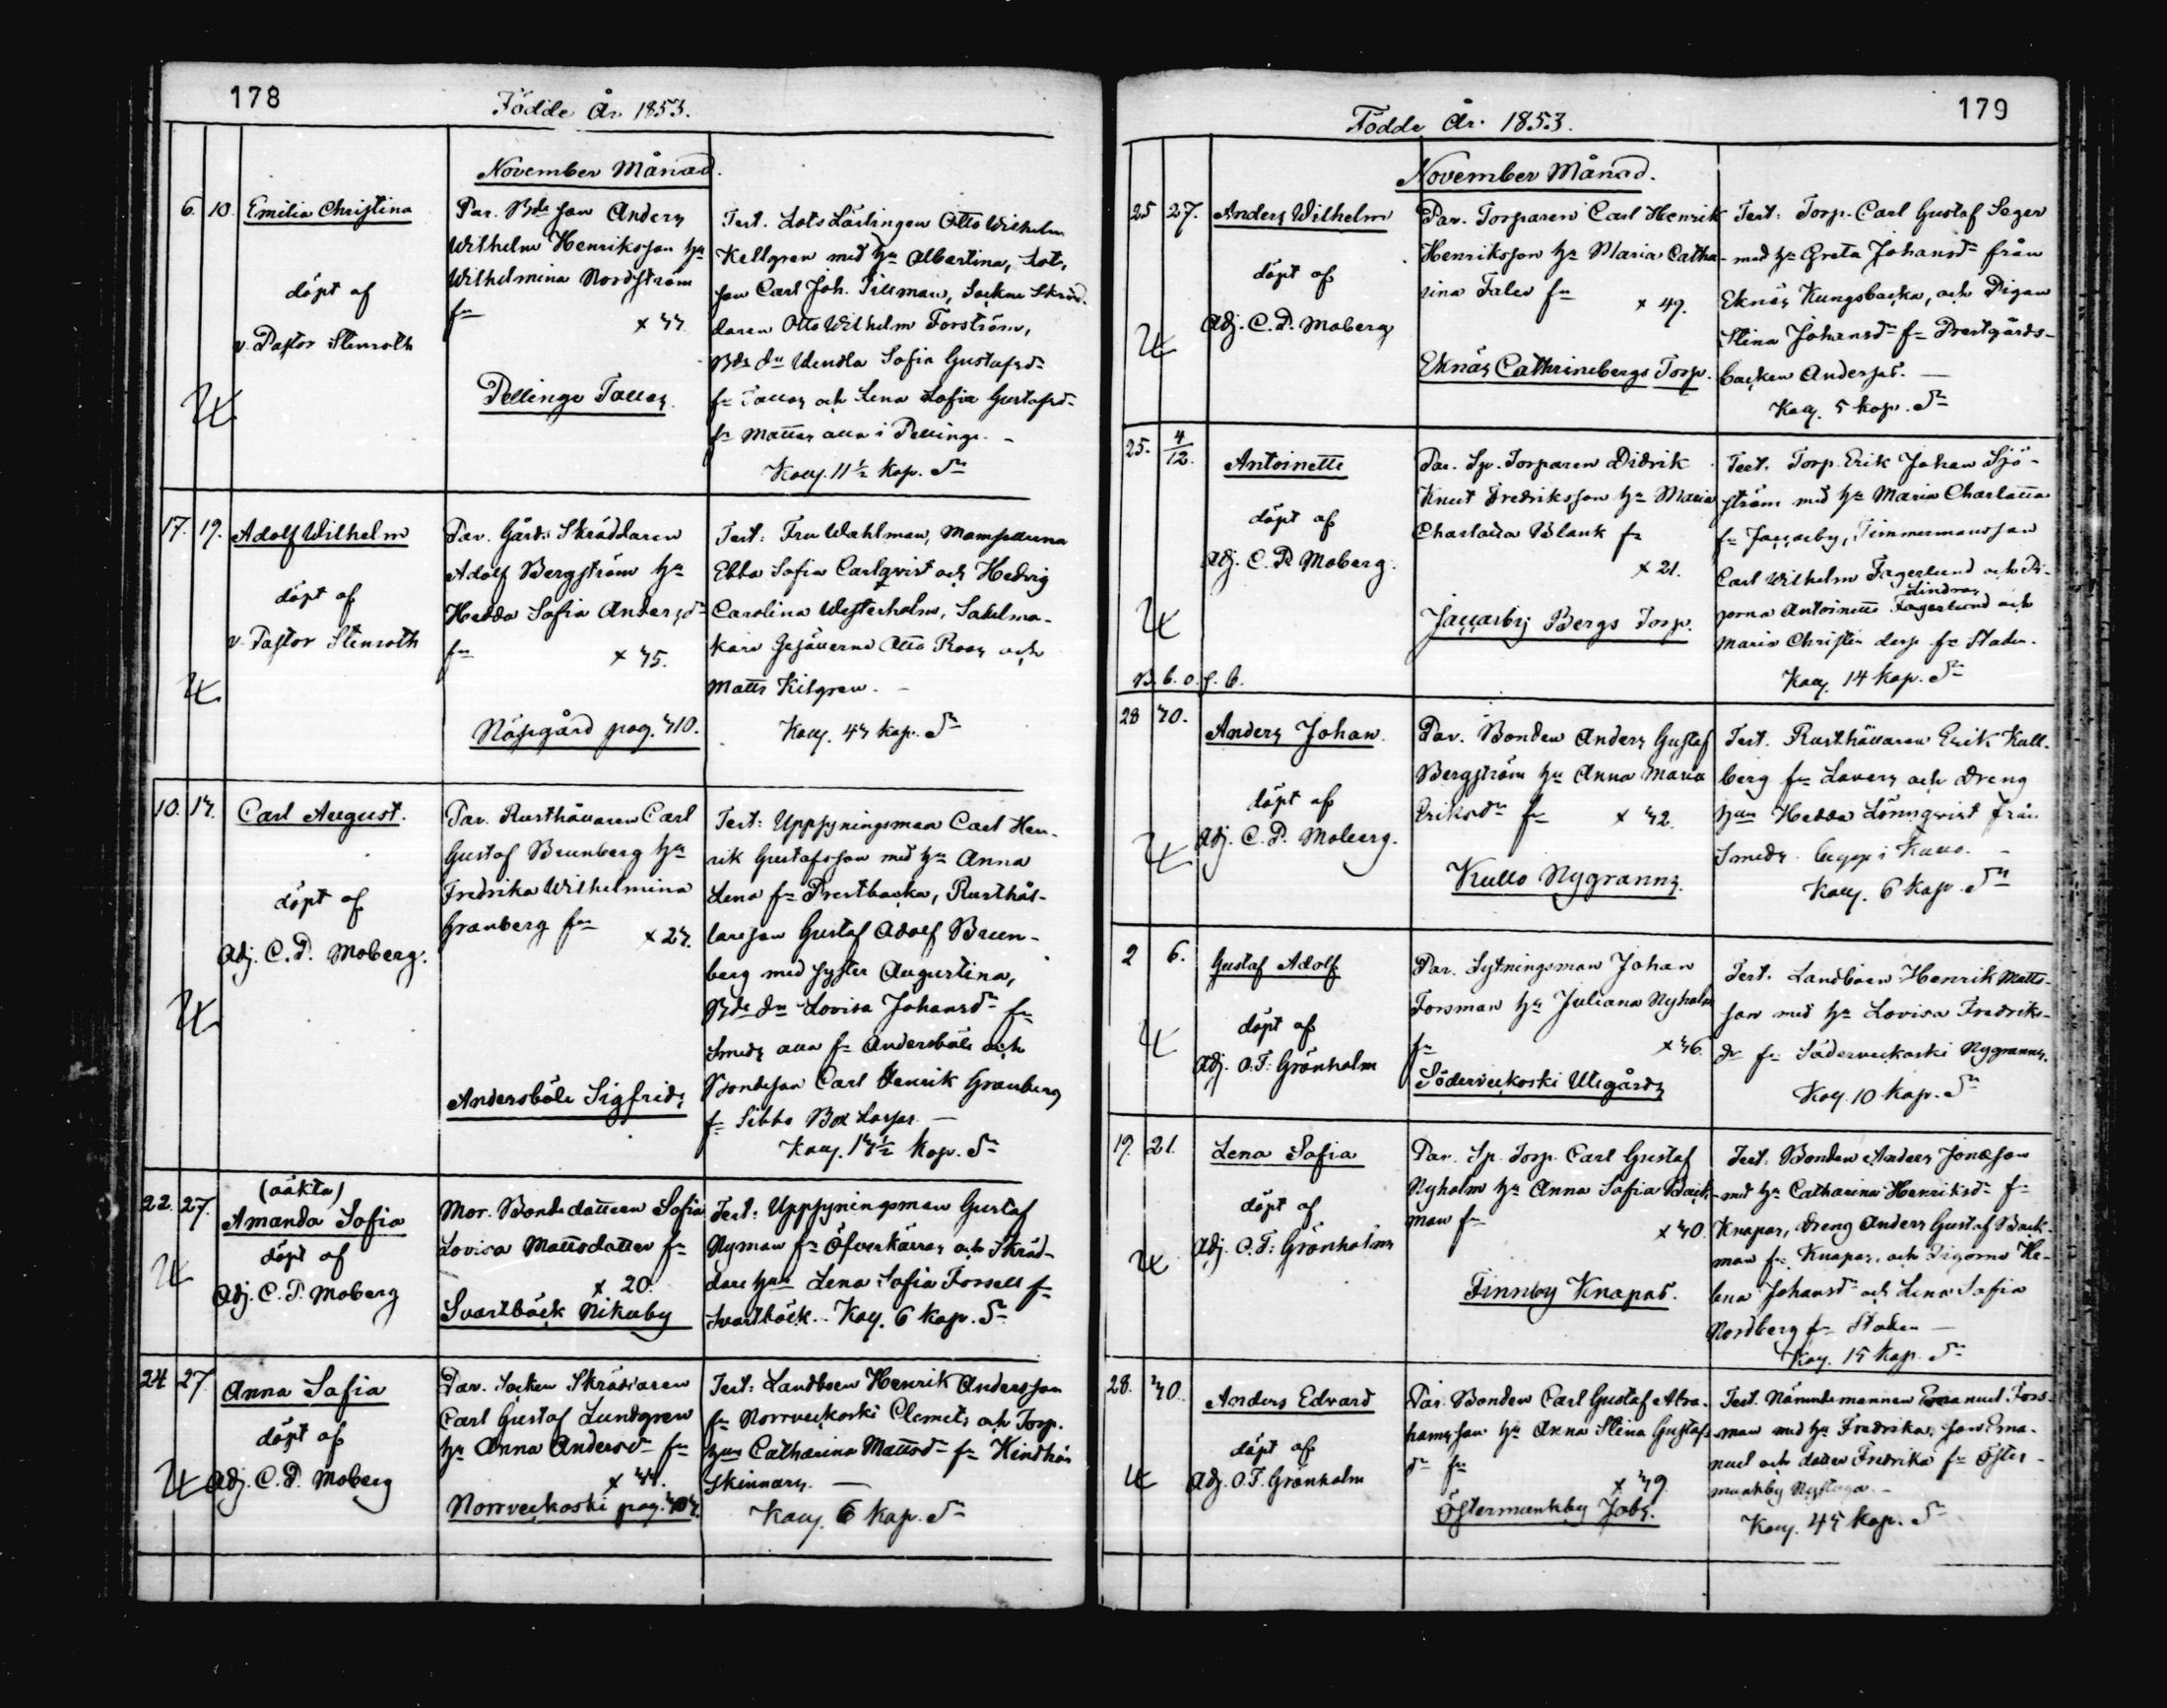 178
Födde År 1853.
November Månad.
6. 10. Emilia Christina
döpt af
v. Pastor Stenroth
Par. Bde Son Anders
Wilhelm Henriksson hu
Wilhelmina Nordström
fr
Pellinge Tallas
Test. Lots Lärlingen Otto Wilhelm
Kellgren med hu Albertina, Lots
son Carl Joh. Tillman, Sockne Skräd-
daren Otto Wilhelm Forström,
Bde dr Wendla Sofia Gustafsdr
fr Tallas och Lena Sofia Gustafsdr
fr Mattas alla i Pellinge. –
Koll. 11½ kop. Sr
17. 19. Adolf Wilhelm
döpt af
v. Pastor Stenroth
Par. Gårds Skräddaren
Adolf Bergström hu
Hedda Sofia Andersdr
fr
Näsegård pag. 310.
Test: Fru Wahlman, Mamsellerna
Ebba Sofia Carlqvist och Hedvig
Carolina Westerholm, Sadelma-
kare Gesällerne Otto Roos och
Matts Kilgren. –
Koll. 43 kop. Sr
10. 13. Carl August.
döpt af
Adj. C. P. Moberg.
Par. Rusthållaren Carl
Gustaf Brunberg hu
Fredrika Wilhelmina
Granberg fr
x 23.
Andersböle Sigfrids
Test: Uppsyningsman Carl Hen-
rik Gustafsson med hu Anna
Lena fr Prestbacka, Rusthål-
lareson Gustaf Adolf Brun-
berg med syster Augustina,
Bde dr Lovisa Johansdr fr
Smeds alla fr Andersböle och
Bondeson Carl Henrik Granberg
fr Sibbo Box Larsas –
Koll. 13½ kop. Sr
22. 27. (oäkta)
Amanda Sofia
döpt af
Adj. C. P. Moberg
Mor. Bondedottren Sofia
Lovisa Mattsdotter fr
x 20.
Svartbäck Nikuby
Test: Uppsyningsman Gustaf
Nyman fr Öfverkärras och Skräd-
dare hun Lena Sofia Forsell fr
Svartbäck. Koll. 6 kop. Sr
24 27 Anna Sofia
döpt af
Adj. C. P. Moberg
Par. Socken Skräddaren
Carl Gustaf Lundgren
hu Anna Andersdr fr
Norrveckoski pag. 303.
Test: Landboen Henrik Andersson
fr Norrveckoski Clemets och Torp.
hun Catharina Mattsdr fr Hindhår
Skinnars. –
Koll. 6 kop. Sr
179
Födde År 1853.
November Månad.
25 27. Anders Wilhelm
döpt af
Adj. C. P. Moberg
Par. Torparen Carl Henrik
Henriksson hu Maria Catha-
rina Faler fr
x 49.
Eknäs Cathrinebergs Torp.
Test: Torp. Carl Gustaf Seger
med hu Greta Johansdr från
Eknäs Kungsbacka, och Pigan
Stina Johansdr fr Prestgårds-
backen Anderset. –
Koll. 5 kop. Sr
25. 4/12. Antoinette
döpt af
Adj. C. P. Moberg.
B. b. o. f. b.
Par. Sp. Torparen Didrik
Knut Fredriksson hu Maria
Charlotta Blank fr
x 21.
Jackarby Bergs Torp.
Test. Torp. Erik Johan Sjö-
ström med hu Maria Charlotta
fr Jackarby, Timmermansson
Carl Wilhelm Fagerlund och Pi-
gorna Antoinette Lindroos Fagerlund och
Maria Christin dersp. fr Staden.
Koll. 14 kop. Sr
28 30. Anders Johan.
döpt af
Adj. C. P. Moberg.
Par. Bonden Anders Gustaf
Bergström hu Anna Maria
Eriksdr fr x 32.
Kullo Nygranns.
Test. Rusthållaren Erik Kull-
berg fr Lavers och Dreng
hun Hedda Lönnqvist från
Smeds i Kullo. –
Koll. 6 kop. Sr
2 6. Gustaf Adolf
döpt af
Adj. O. F. Grönholm
Par. Sytningsman Johan
Forsman hu Juliana Nyholm
fr x 36.
Söderveckoski Utegårds
Test. Landboen Henrik Matts-
son med hu Lovisa Fredriks-
dr fr Söderveckoski Nygranns.
Koll. 10 kop. Sr
19. 21. Lena Sofia
döpt af
Adj. O. F. Grönholm
Par. Sp. Torp. Carl Gustaf
Nyholm hu Anna Sofia Back-
man fr
x 30.
Finnby Knapas.
Test. Bonden Anders Jonasson
med hu Catharina Henriksdr fr
Knapas, Dreng Anders Gustaf Back-
man fr Knapas, och Pigorna He-
lena Johansdr och Lena Sofia
Nordberg fr Staden –
Koll. 15 kop. Sr
28. 30. Anders Edvard
döpt af
Adj. O. F. Grönholm
Par. Bonden Carl Gustaf Abra-
hamsson hu Anna Stina Gustafs-
dr fr
x 39.
Östermunkby Jobs.
Test. Nämndemannen Emanuel Fors-
man med hu Fredrika, son Ema-
nuel och dotter Fredrika fr Öster-
munkby Nystoga. –
Koll. 45 kop. Sr